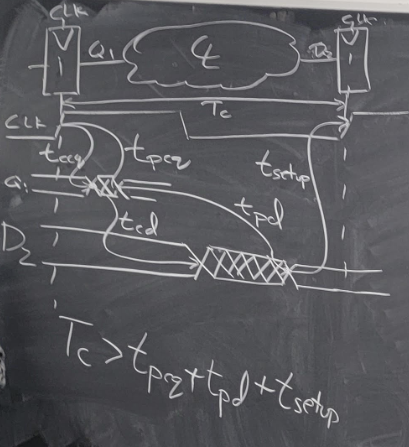 CLK CLK
Q1 CL D2
Tc
CLK
tccq tpcq tsetup
Q1
tcd tpd
D2
Tc > tpcq + tpd + tsetup